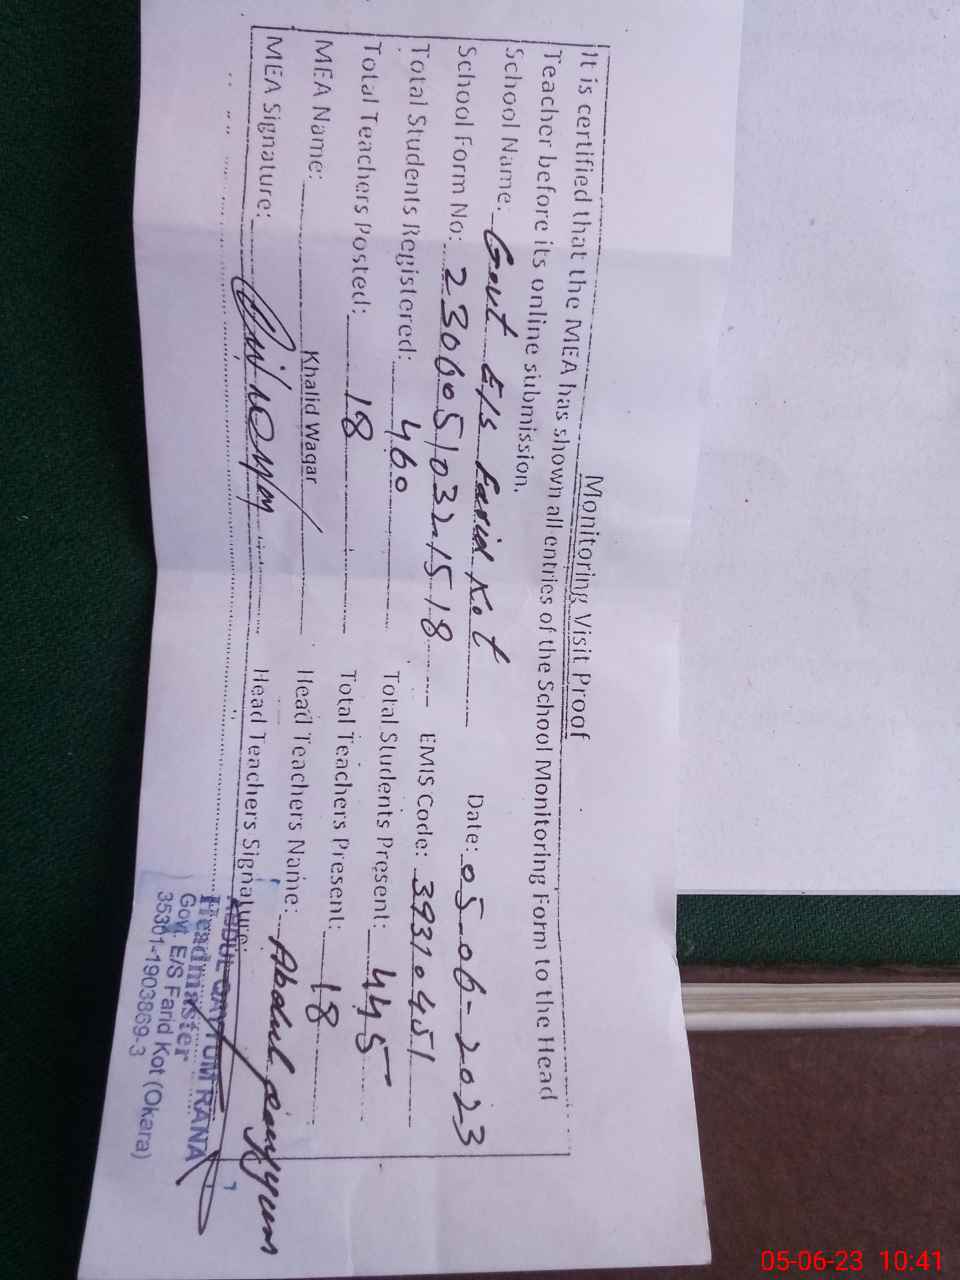 Monitoring Visit Proof
It is certified that the MEA has shown all entries of the School Monitoring Form to the Head
Teacher before its online submission.
School Name: Govt E/S Farid Kot Date: 05-06-2023
School Form No: 23060510321518 EMIS Code: 39310451
Total Students Registered: 460 Total Students Present: 445
Total Teachers Posted: 18 Total Teachers Present: 18
MEA Name: Khalid Waqar Head Teachers Name: Abdul Qayyum
MEA Signature: Head Teachers Signature:
ABDUL QAYYUM RANA
Headmaster
Govt. E/S Farid Kot (Okara)
35301-1903869-3
05-06-23 10:41